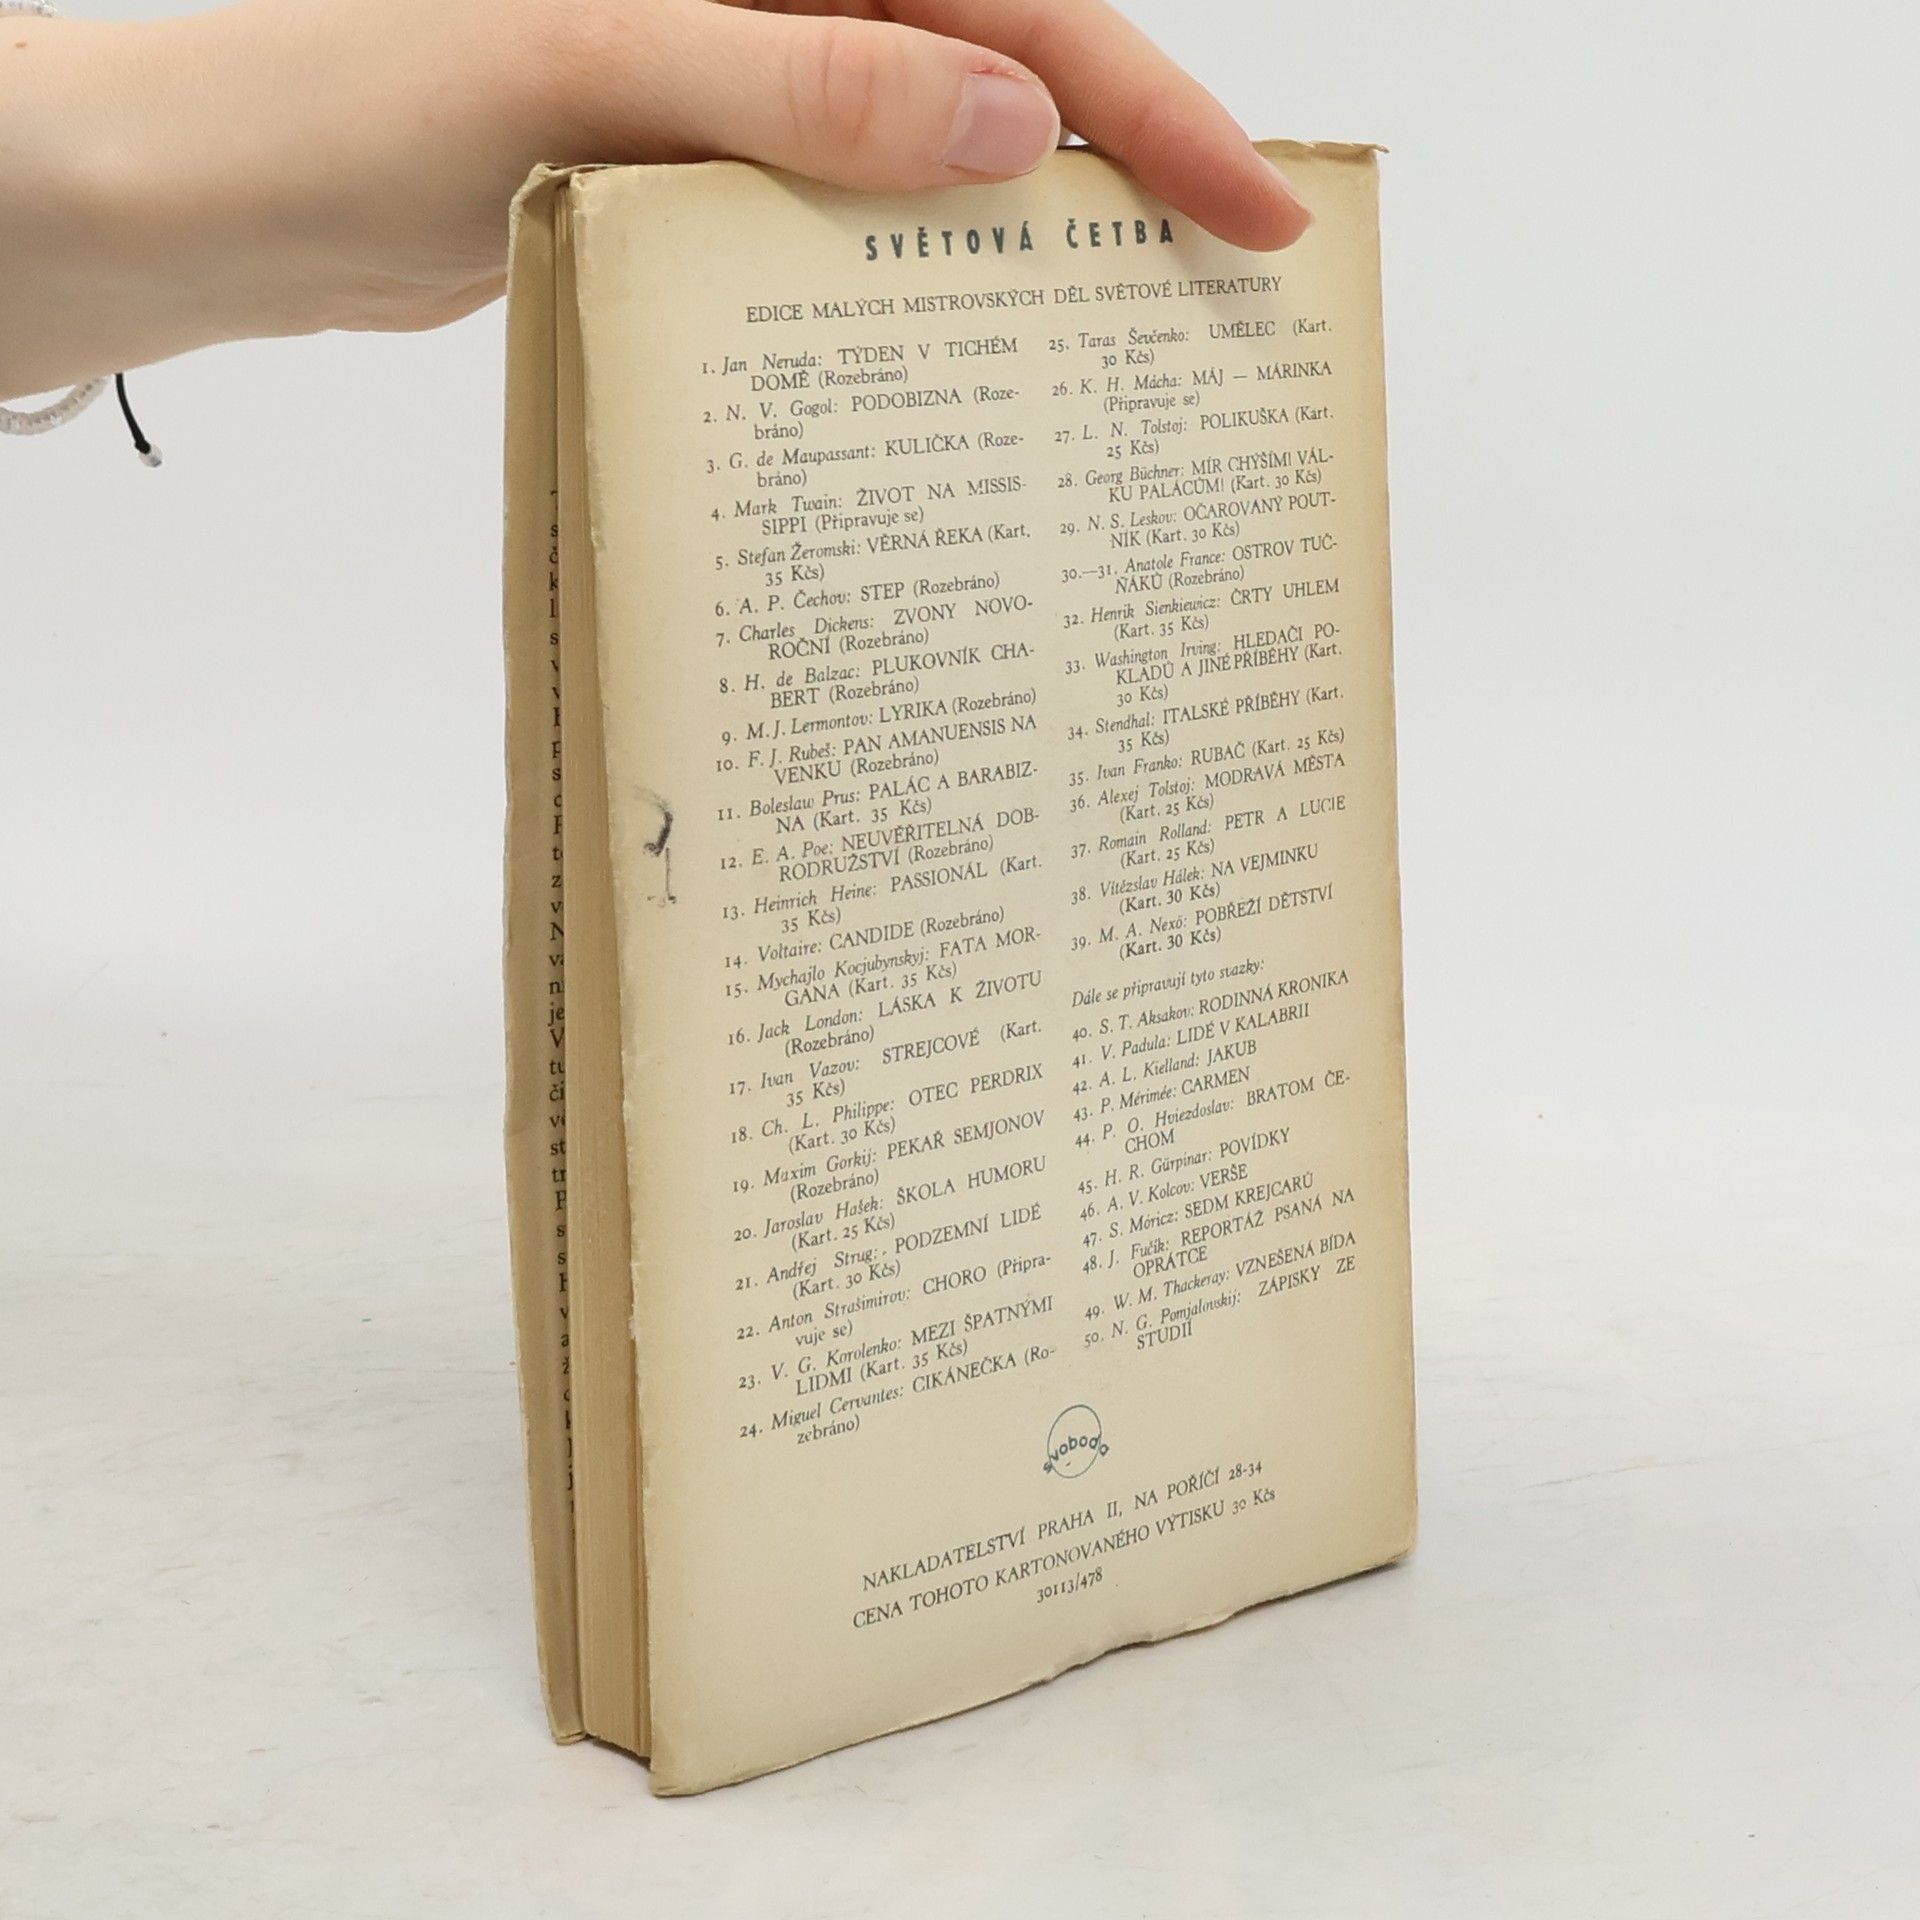 SVĚTOVÁ ČETBA
EDICE MALÝCH MISTROVSKÝCH DĚL SVĚTOVÉ LITERATURY
1. Jan Neruda: TÝDEN V TICHÉM
DOMĚ (Rozebráno)
2. N. V. Gogol: PODOBIZNA (Roze-
bráno)
3. G. de Maupassant: KULIČKA (Roze-
bráno)
4. Mark Twain: ŽIVOT NA MISSIS-
SIPPI (Připravuje se)
5. Stefan Žeromski: VĚRNÁ ŘEKA (Kart.
35 Kčs)
6. A. P. Čechov: STEP (Rozebráno)
7. Charles Dickens: ZVONY NOVO-
ROČNÍ (Rozebráno)
8. H. de Balzac: PLUKOVNÍK CHA-
BERT (Rozebráno)
9. M. J. Lermontov: LYRIKA (Rozebráno)
10. F. J. Rubeš: PAN AMANUENSIS NA
VENKU (Rozebráno)
11. Boleslaw Prus: PALÁC A BARABIZ-
NA (Kart. 35 Kčs)
12. E. A. Poe: NEUVĚŘITELNÁ DOB-
RODRUŽSTVÍ (Rozebráno)
13. Heinrich Heine: PASSIONÁL (Kart.
35 Kčs)
14. Voltaire: CANDIDE (Rozebráno)
15. Mychajlo Kocjubynskyj: FATA MOR-
GANA (Kart. 35 Kčs)
16. Jack London: LÁSKA K ŽIVOTU
(Rozebráno)
17. Ivan Vazov: STREJCOVÉ (Kart.
35 Kčs)
18. Ch. L. Philippe: OTEC PERDRIX
(Kart. 30 Kčs)
19. Maxim Gorkij: PEKAŘ SEMJONOV
(Rozebráno)
20. Jaroslav Hašek: ŠKOLA HUMORU
(Kart. 25 Kčs)
21. Andřej Strug: PODZEMNÍ LIDÉ
(Kart. 30 Kčs)
22. Anton Strašimirov: CHORO (Připra-
vuje se)
23. V. G. Korolenko: MEZI ŠPATNÝMI
LIDMI (Kart. 35 Kčs)
24. Miguel Cervantes: CIKÁNEČKA (Ro-
zebráno)
25. Taras Ševčenko: UMĚLEC (Kart.
30 Kčs)
26. K. H. Mácha: MÁJ — MÁRINKA
(Připravuje se)
27. L. N. Tolstoj: POLIKUŠKA (Kart.
25 Kčs)
28. Georg Büchner: MÍR CHÝŠÍM! VÁL-
KU PALÁCŮM! (Kart. 30 Kčs)
29. N. S. Leskov: OČAROVANÝ POUT-
NÍK (Kart. 30 Kčs)
30.—31. Anatole France: OSTROV TUČ-
ŇÁKŮ (Rozebráno)
32. Henrik Sienkiewicz: ČRTY UHLEM
(Kart. 35 Kčs)
33. Washington Irving: HLEDAČI PO-
KLADŮ A JINÉ PŘÍBĚHY (Kart.
30 Kčs)
34. Stendhal: ITALSKÉ PŘÍBĚHY (Kart.
35 Kčs)
35. Ivan Franko: RUBAČ (Kart. 25 Kčs)
36. Alexej Tolstoj: MODRAVÁ MĚSTA
(Kart. 25 Kčs)
37. Romain Rolland: PETR A LUCIE
(Kart. 25 Kčs)
38. Vítězslav Hálek: NA VEJMINKU
(Kart. 30 Kčs)
39. M. A. Nexö: POBŘEŽÍ DĚTSTVÍ
(Kart. 30 Kčs)
Dále se připravují tyto svazky:
40. S. T. Aksakov: RODINNÁ KRONIKA
41. V. Padula: LIDÉ V KALABRII
42. A. L. Kielland: JAKUB
43. P. Mérimée: CARMEN
44. P. O. Hviezdoslav: BRATOM ČE-
CHOM
45. H. R. Gürpinar: POVÍDKY
46. A. V. Kolcov: VERŠE
47. S. Móricz: SEDM KREJCARŮ
48. J. Fučík: REPORTÁŽ PSANÁ NA
OPRÁTCE
49. W. M. Thackeray: VZNEŠENÁ BÍDA
50. N. G. Pomjalovskij: ZÁPISKY ZE
STUDIÍ
Svoboda
NAKLADATELSTVÍ PRAHA II, NA POŘÍČÍ 28-34
CENA TOHOTO KARTONOVANÉHO VÝTISKU 30 Kčs
30113/478